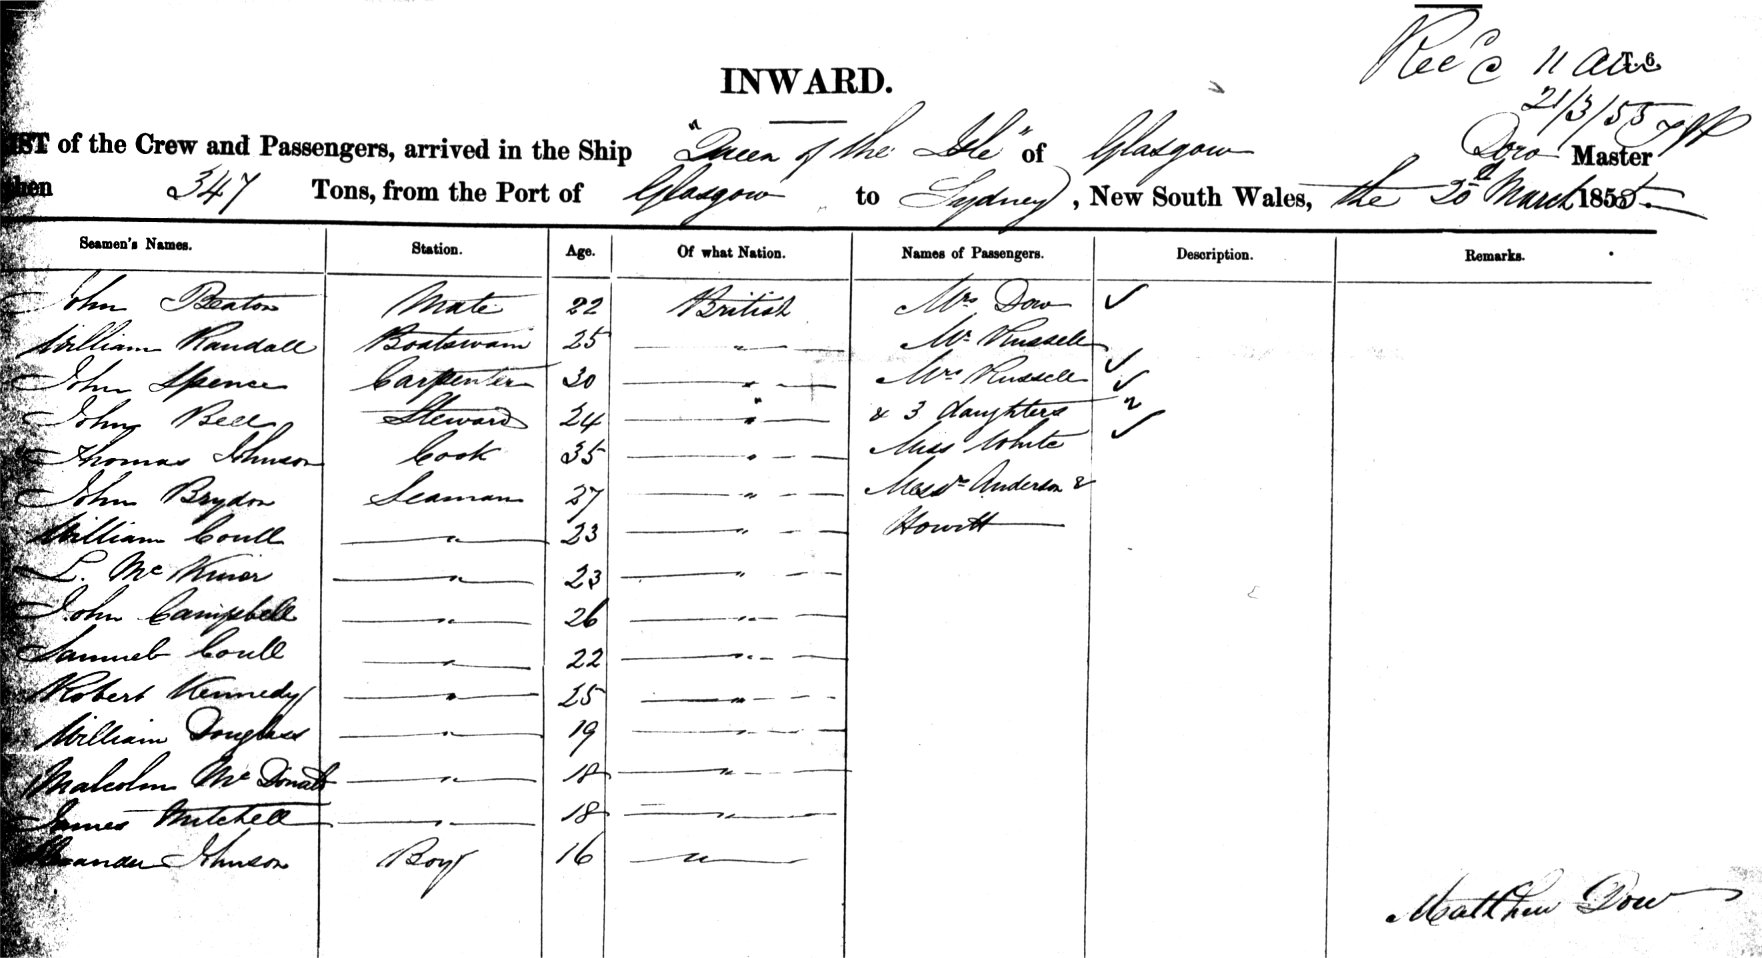 Rec'd 11 am T. 6.
21/3/55
INWARD.
LIST of the Crew and Passengers, arrived in the Ship "Queen of the Isle" of Glasgow Dow Master
Burthen 347 Tons, from the Port of Glasgow to Sydney, New South Wales, the 20th March 1855
Seamen's Names. Station. Age. Of what Nation. Names of Passengers. Description. Remarks.
John Beaton Mate 22 British Mrs Dow ✓
William Randall Boatswain 25 " Mr Russell ✓
John Spence Carpenter 30 " Mrs Russell ✓
John Bell Steward 24 " & 3 daughters
Thomas Johnson Cook 35 " Miss White ✓
John Brydon Seaman 27 " Messrs Anderson &
William Coull " 23 " Howitt
L. Mc " 23 "
John Campbell " 26 "
Samuel Coull " 22 "
Robert Kennedy " 25 "
William Douglass " 19 "
Malcolm McDonald " 18 "
James Mitchell " 18 "
Alexander Johnson Boy 16 "
Matthew Dow